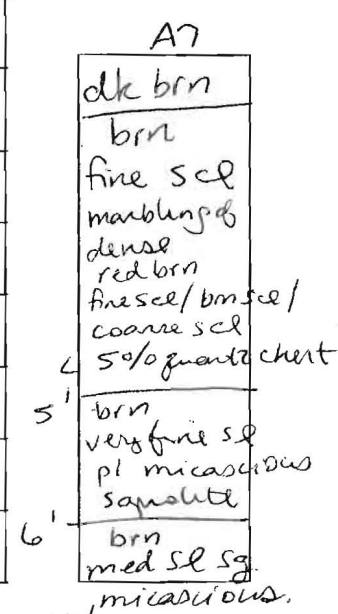 A7
dk brn
brn
fine scl
marbling of
dense
red brn
fine scl / brn scl /
coarse scl
< 5% quartz chert
5'
brn
very fine sl
pl micascious
saprolite
6'
brn
med sl sg
micascious.